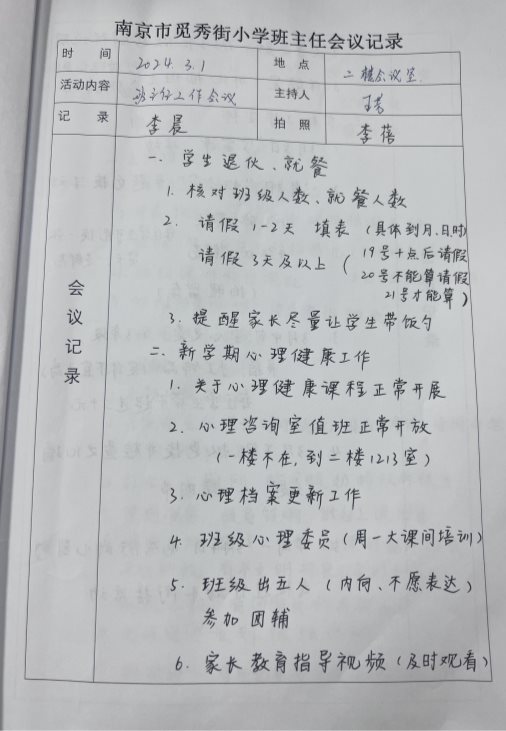 南京市觅秀街小学班主任会议记录
时 间 2024.3.1 地 点 二楼会议室
活动内容 班主任工作会议 主持人
记 录 李晨 拍 照 李蓓
会议记录
一、学生退伙、就餐
1. 核对班级人数、就餐人数
2. 请假1-2天 填表（具体到月、日、时）
请假3天及以上（19号十点后请假
20号不能算请假
21号才能算）
3. 提醒家长尽量让学生带饭勺
二、新学期心理健康工作
1. 关于心理健康课程正常开展
2. 心理咨询室值班正常开放
（一楼不在，到二楼1213室）
3. 心理档案更新工作
4. 班级心理委员（周一大课间培训）
5. 班级出五人（内向、不愿表达）
参加团辅
6. 家长教育指导视频（及时观看）